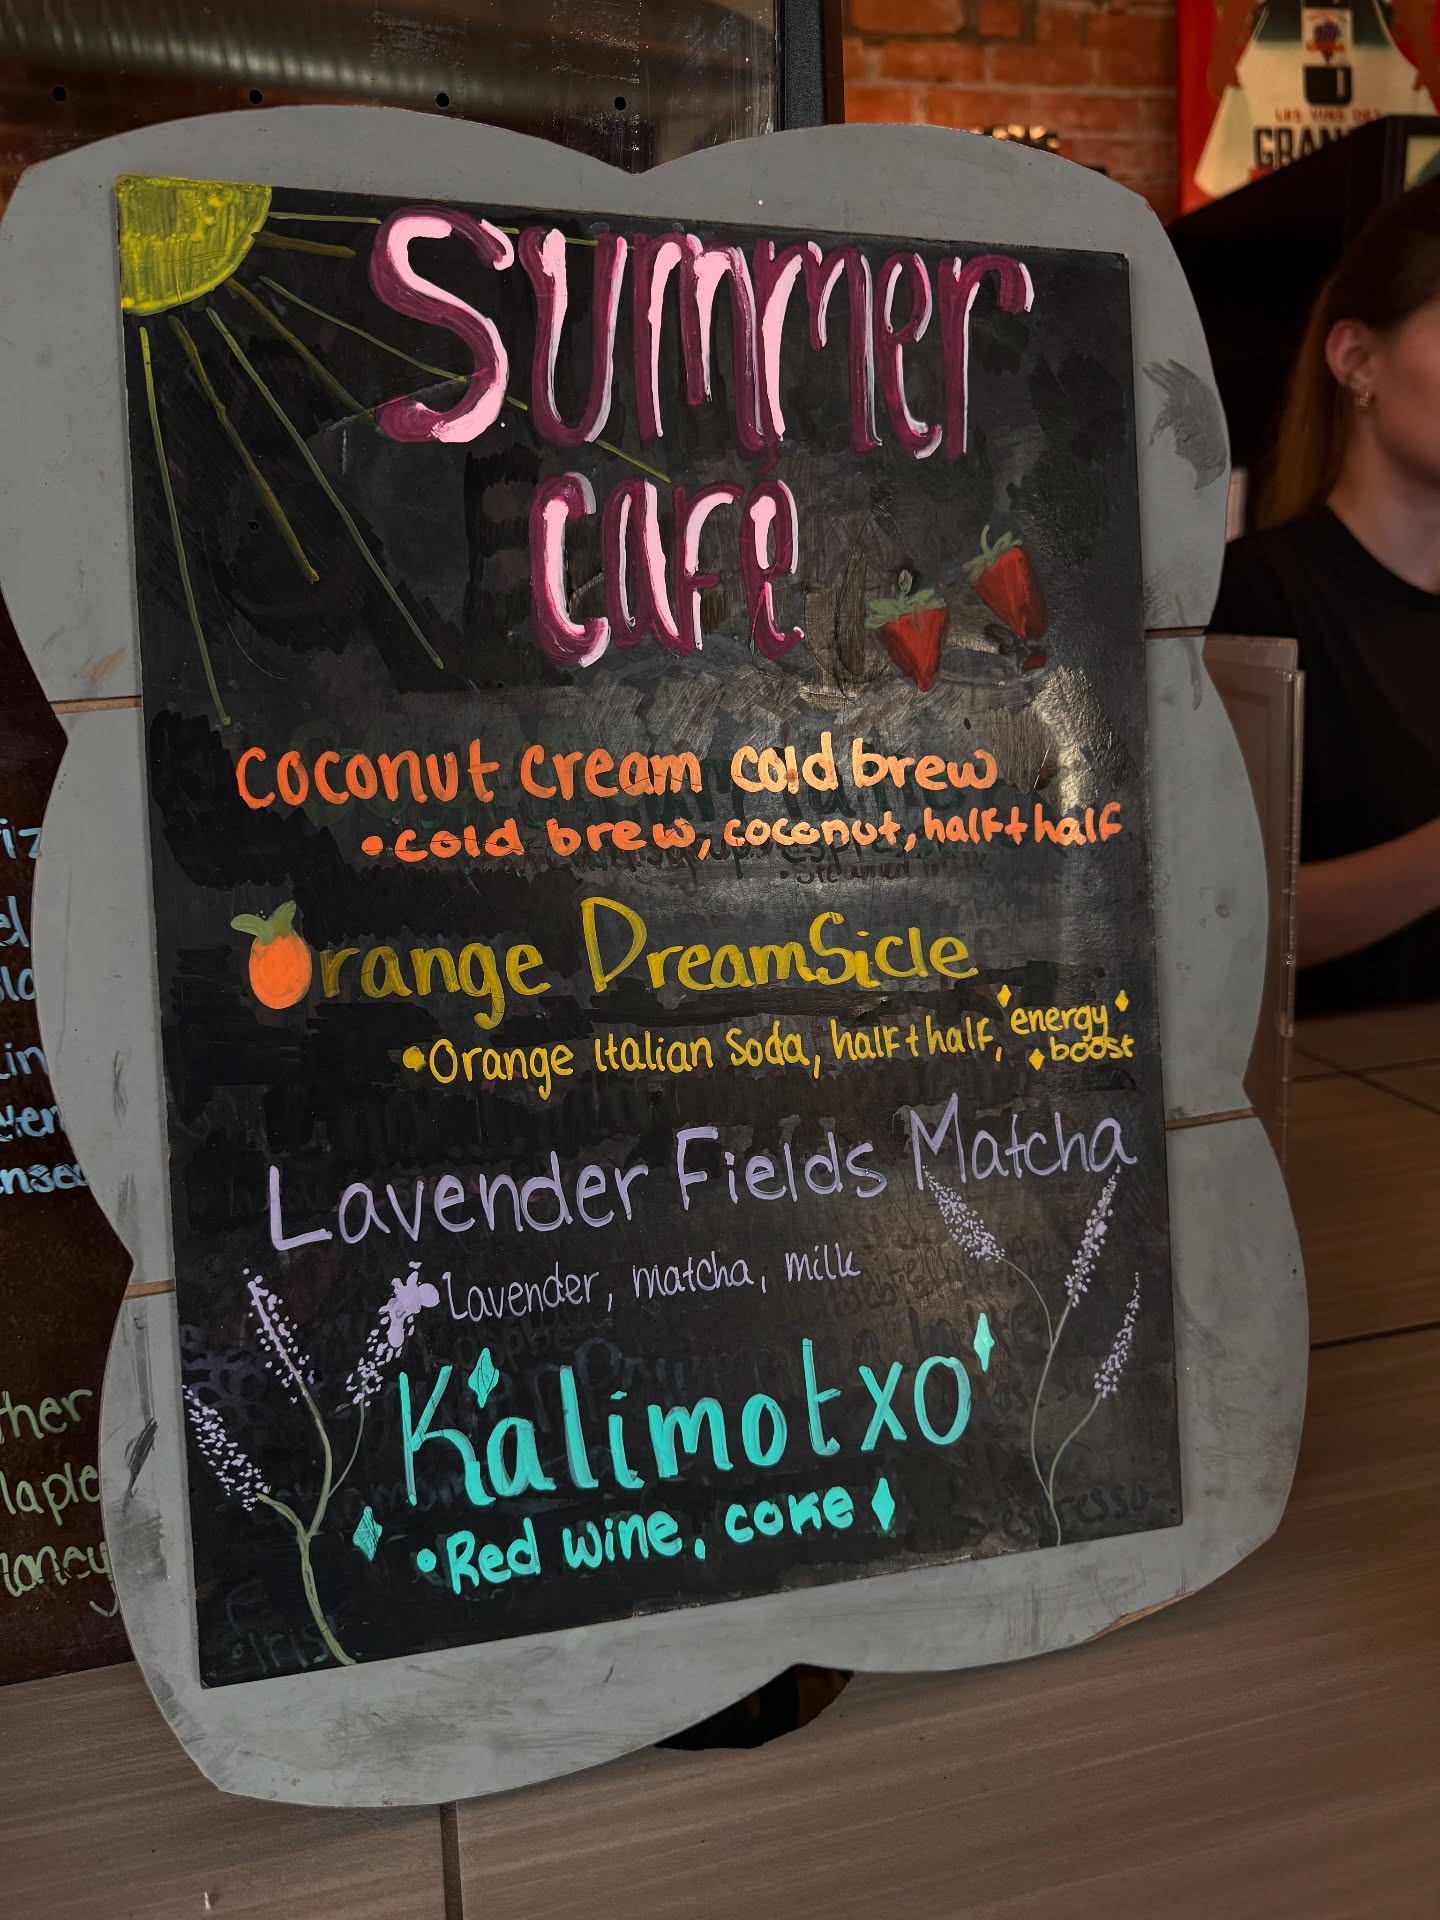 Summer
café
coconut cream cold brew
• cold brew, coconut, half + half
Orange DreamSicle
• Orange Italian Soda, half + half, energy
boost
Lavender Fields Matcha
lavender, matcha, milk
Kalimotxo
• Red wine, coke
LES VINS DES
GRAN